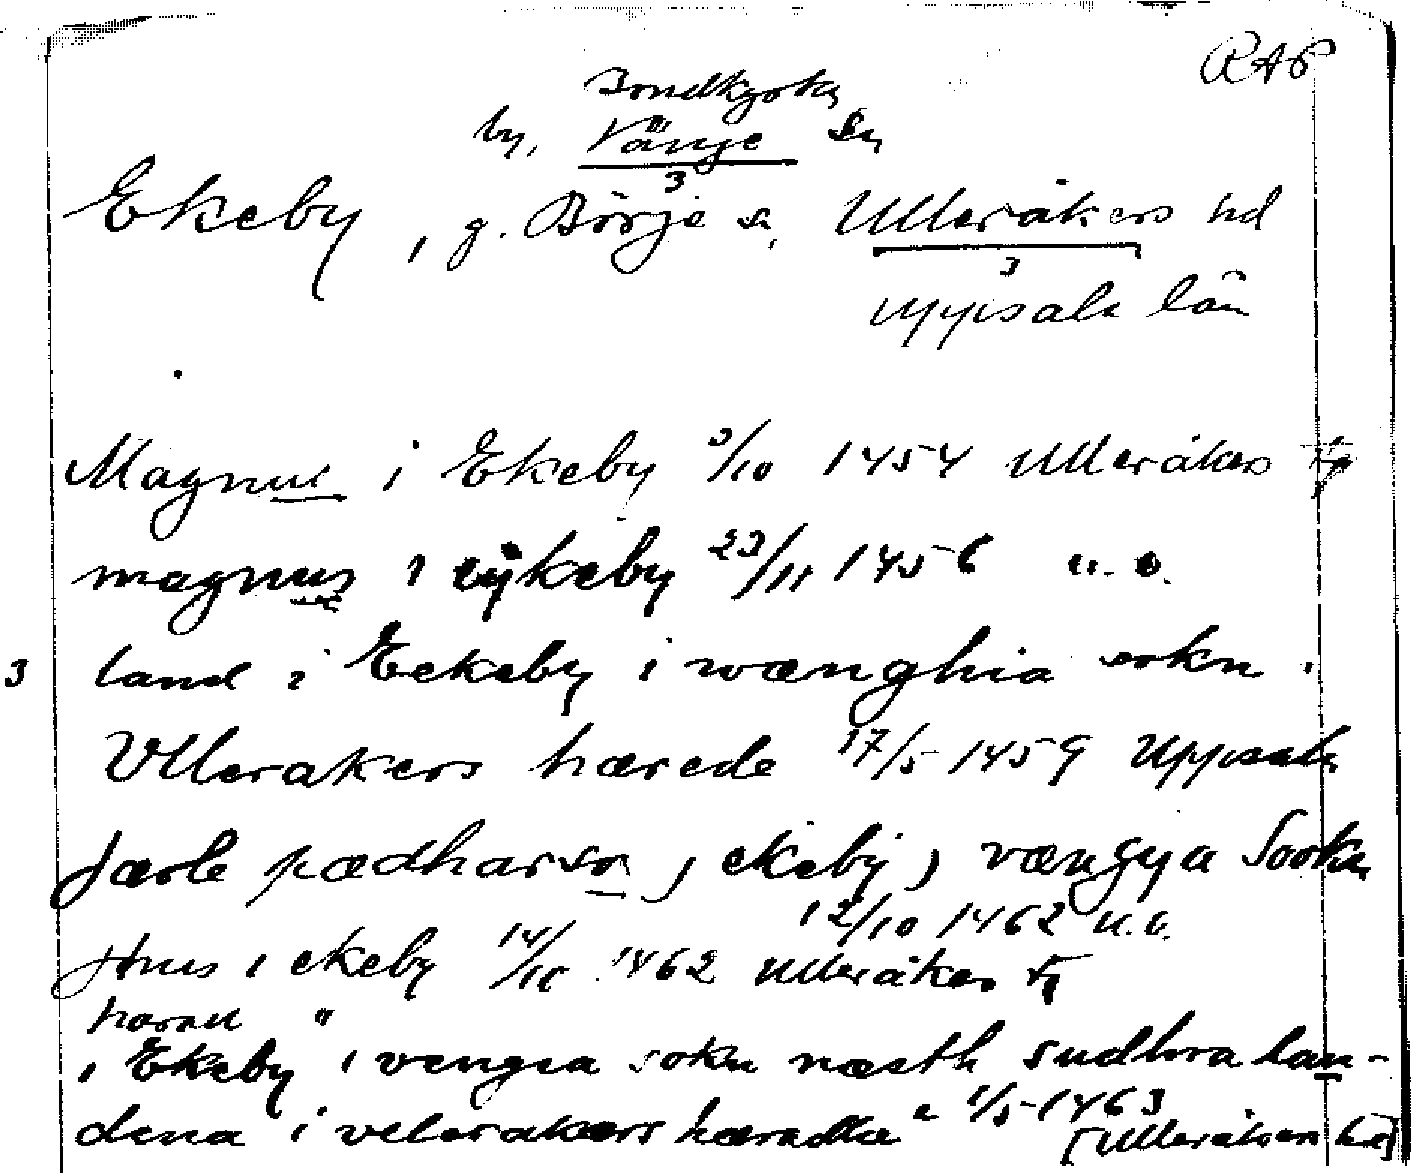 RAP
Bondkyrko
by, Vänge sn
3
Ekeby, g. Börje sn, Ulleråkers hd
3
Uppsala län
Magnus i Ekeby 3/10 1454 Ulleråkers
magnus i eykeby 23/11 1456 u. o.
3 land i Eekeby i wænghia sokn i
Vllerakers hærede 17/5 1459 Uppsala
Jærle pædharson j ekeby j vængya Sokn
12/10 1462 u.o.
Jhus i ekeby 14/11 1462 Ulleråkers
haral "
i Ekeby i vengia sokn næsth sudhra lan-
dena i vlerakers hæradhe 1/5 1463
[Ulleråkers hd]